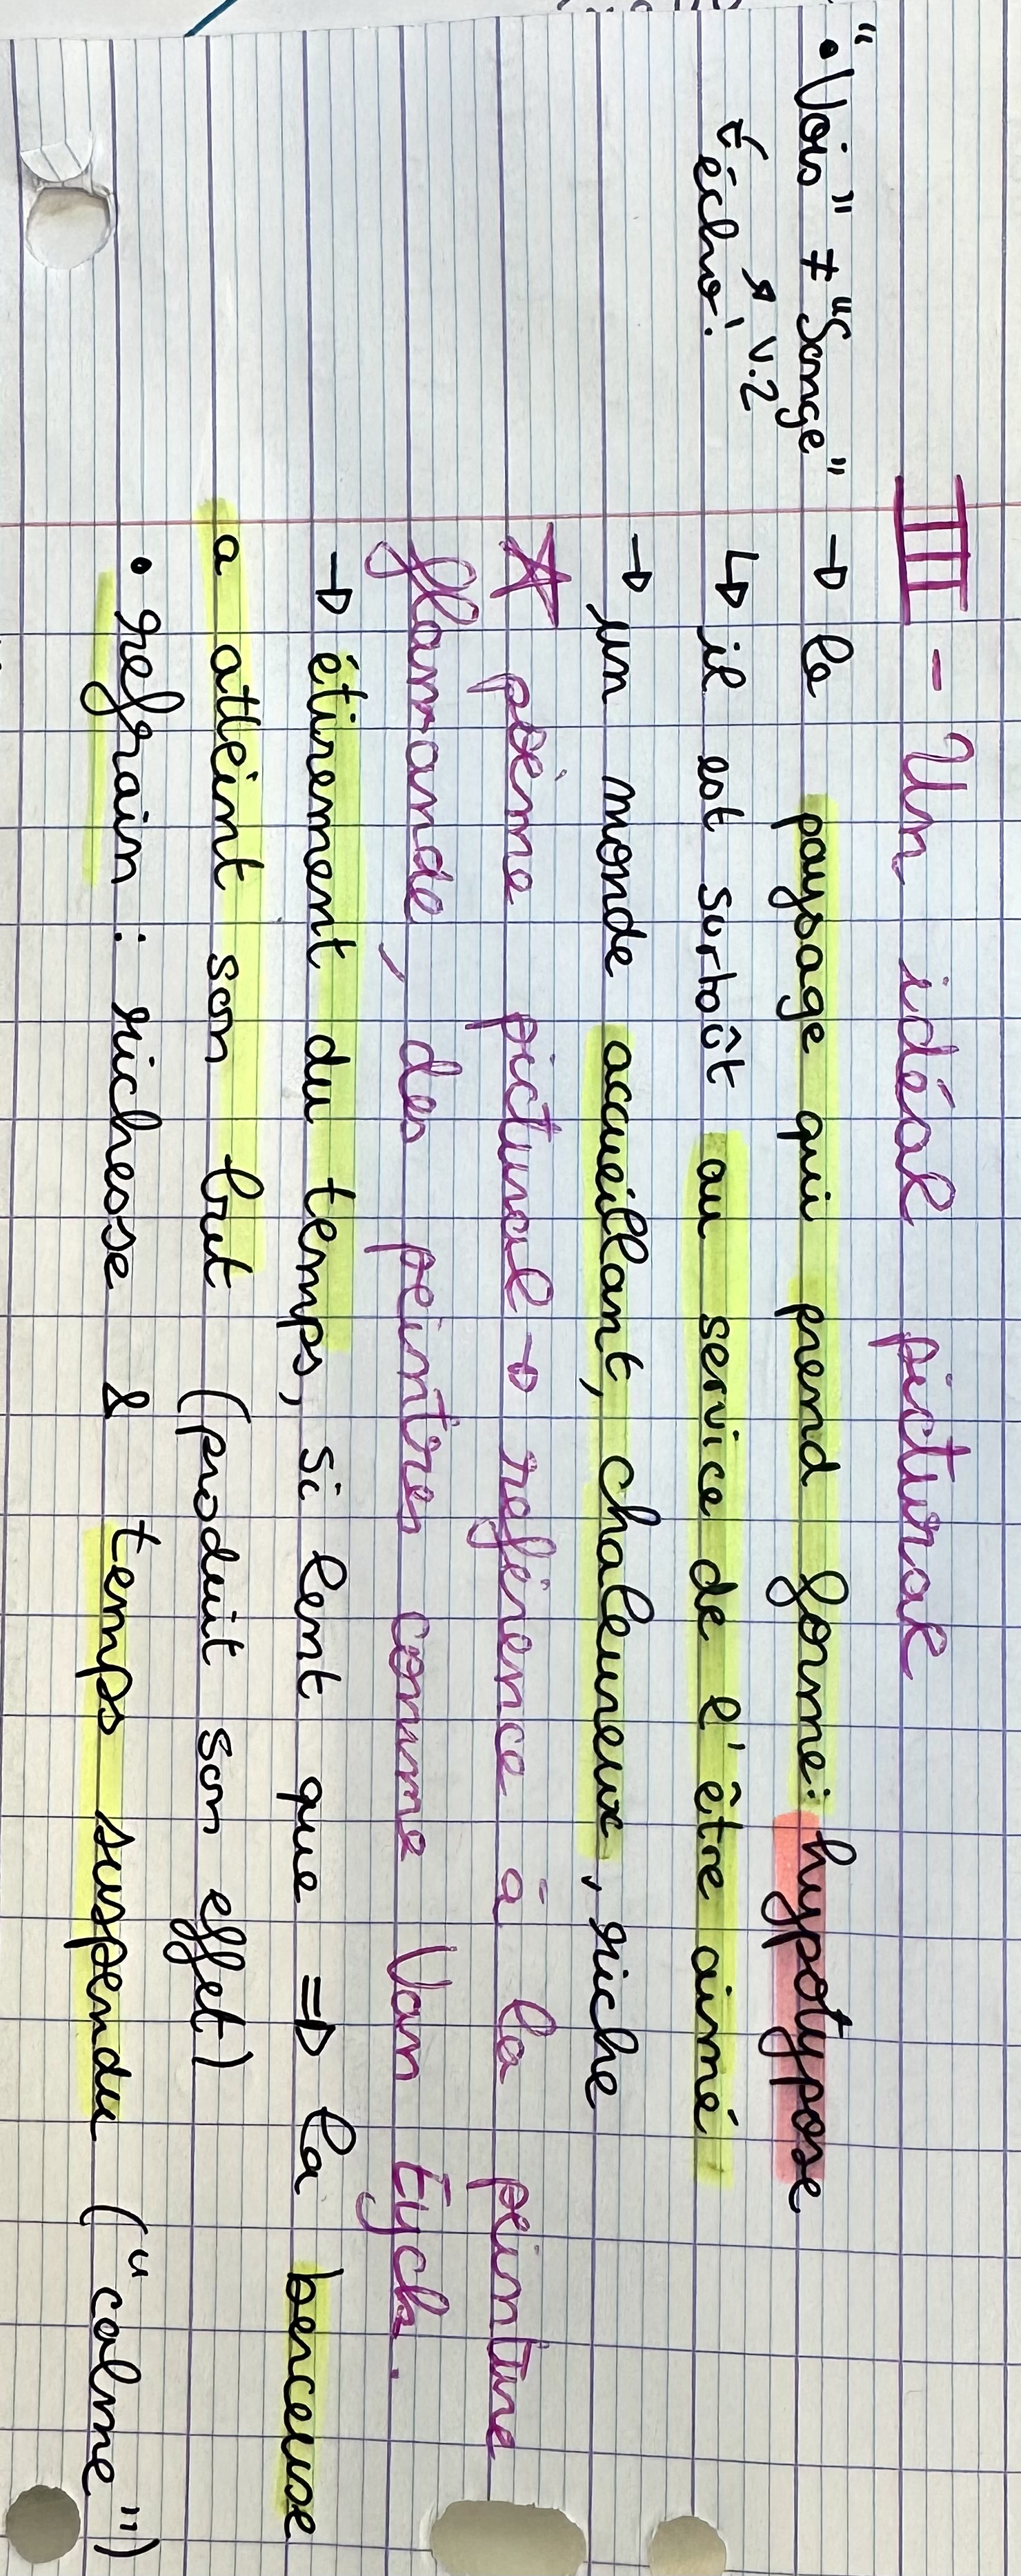 III - Un idéal pictural
• "Vois" ≠ "Songe" → le paysage qui prend forme: hypotypose
↗ v.2
↙ écho! ↳ il est surtoût au service de l'être aimé
→ un monde accueillant, chaleureux, riche
☆ poème pictural → référence à la peinture
flamande, des peintres comme Van Eych.
→ étirement du temps, si lent que ⇒ la berceuse
a atteint son but (produit son effet)
• refrain : richesse & temps suspendu ("calme")